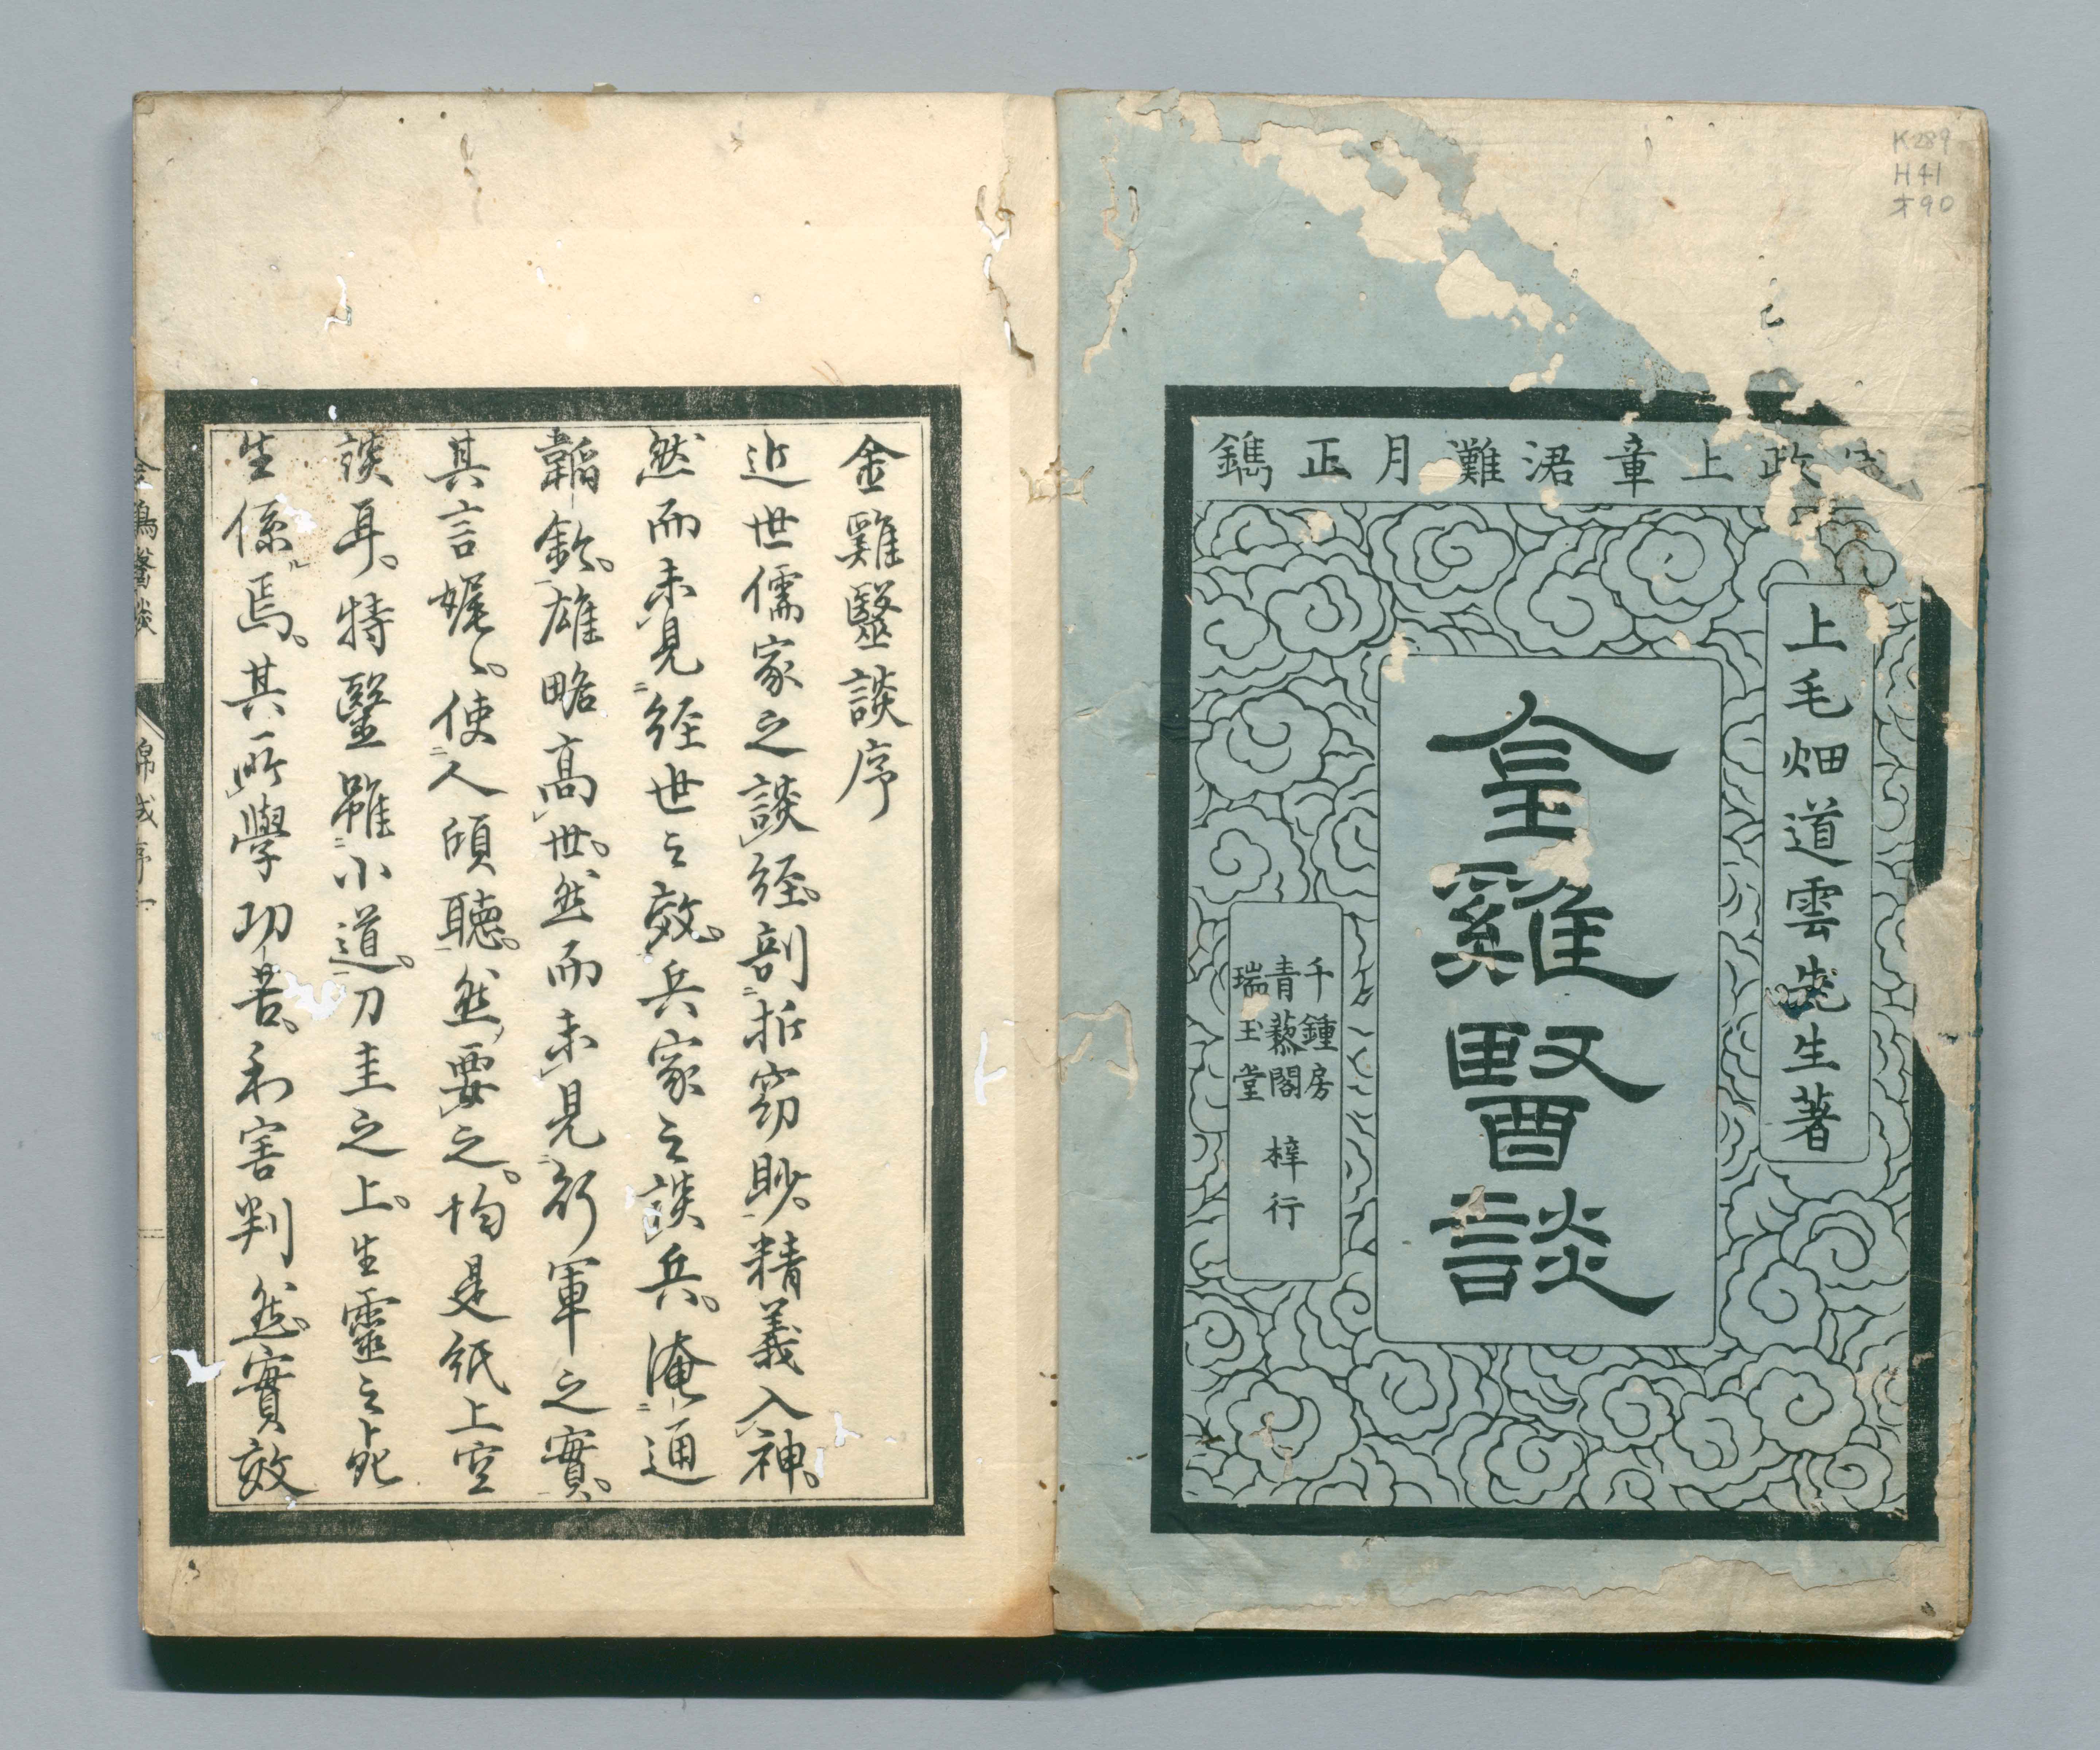 K289
H41
オ90
政上章涒灘月正鐫
上毛畑道雲先生著
金雞醫談
千鍾房
青藜閣
瑞玉堂
梓行
金雞毉談序
近世儒家之談經。剖析窈眇。精義入神。
然而未見經世之效。兵家之談兵。淹通
韜鈐。雄略高世。然而未見行軍之實。
其言娓々。使人傾聽。然要之。均是紙上空
談耳。特毉雖小道。刀圭之上。生靈之死
生係焉。其所學功苦。利害判然。實效